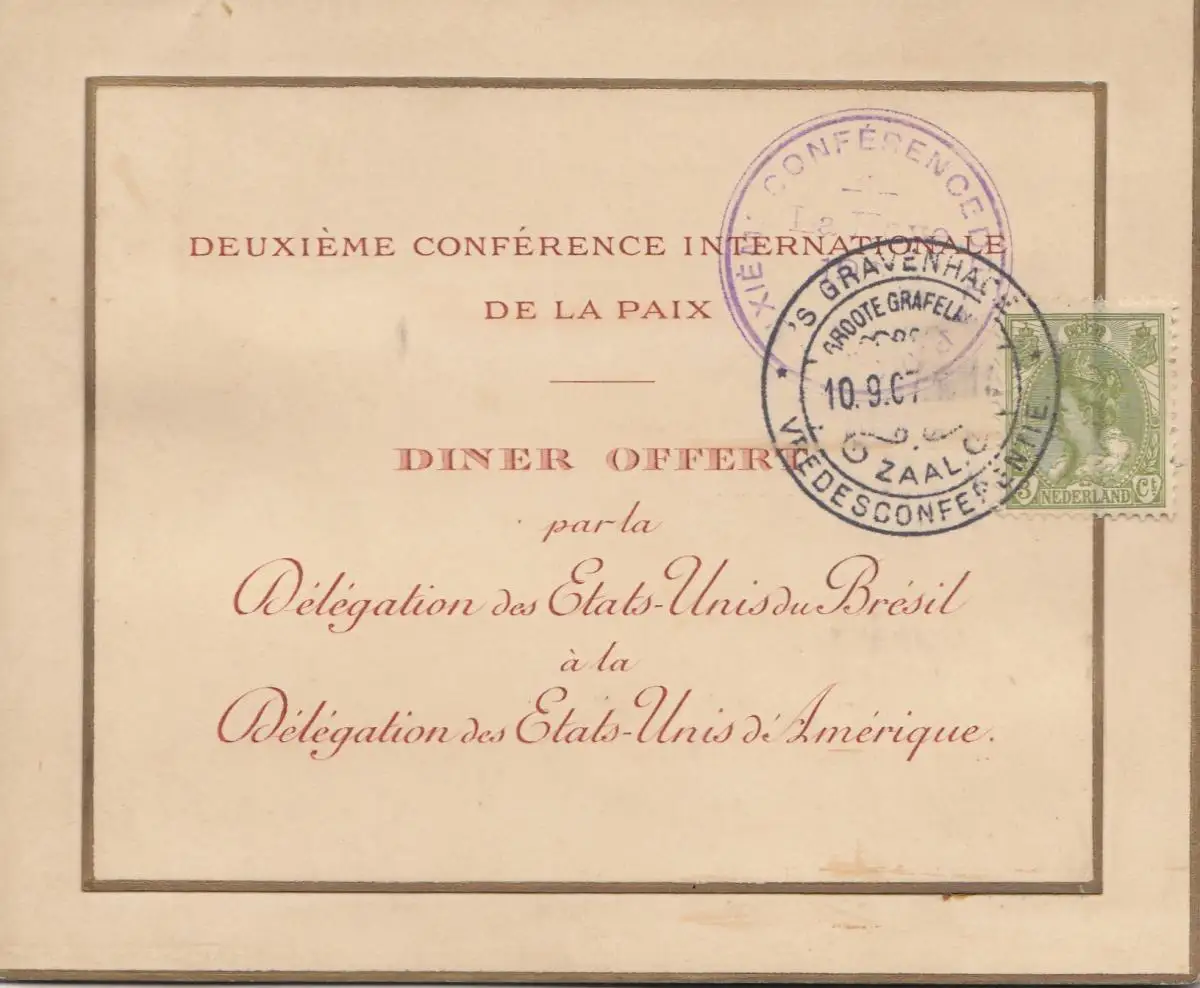 DEUXIÈME CONFÉRENCE INTERNATIONALE
DE LA PAIX
DINER OFFERT
par la
Délégation des Etats-Unis du Brésil
à la
Délégation des Etats-Unis d'Amérique.
CONFÉRENCE
La
'S GRAVENHAGE
GROOTE
10.9.07
ZAAL.
VREDESCONFERENTIE.
3 NEDERLAND Ct